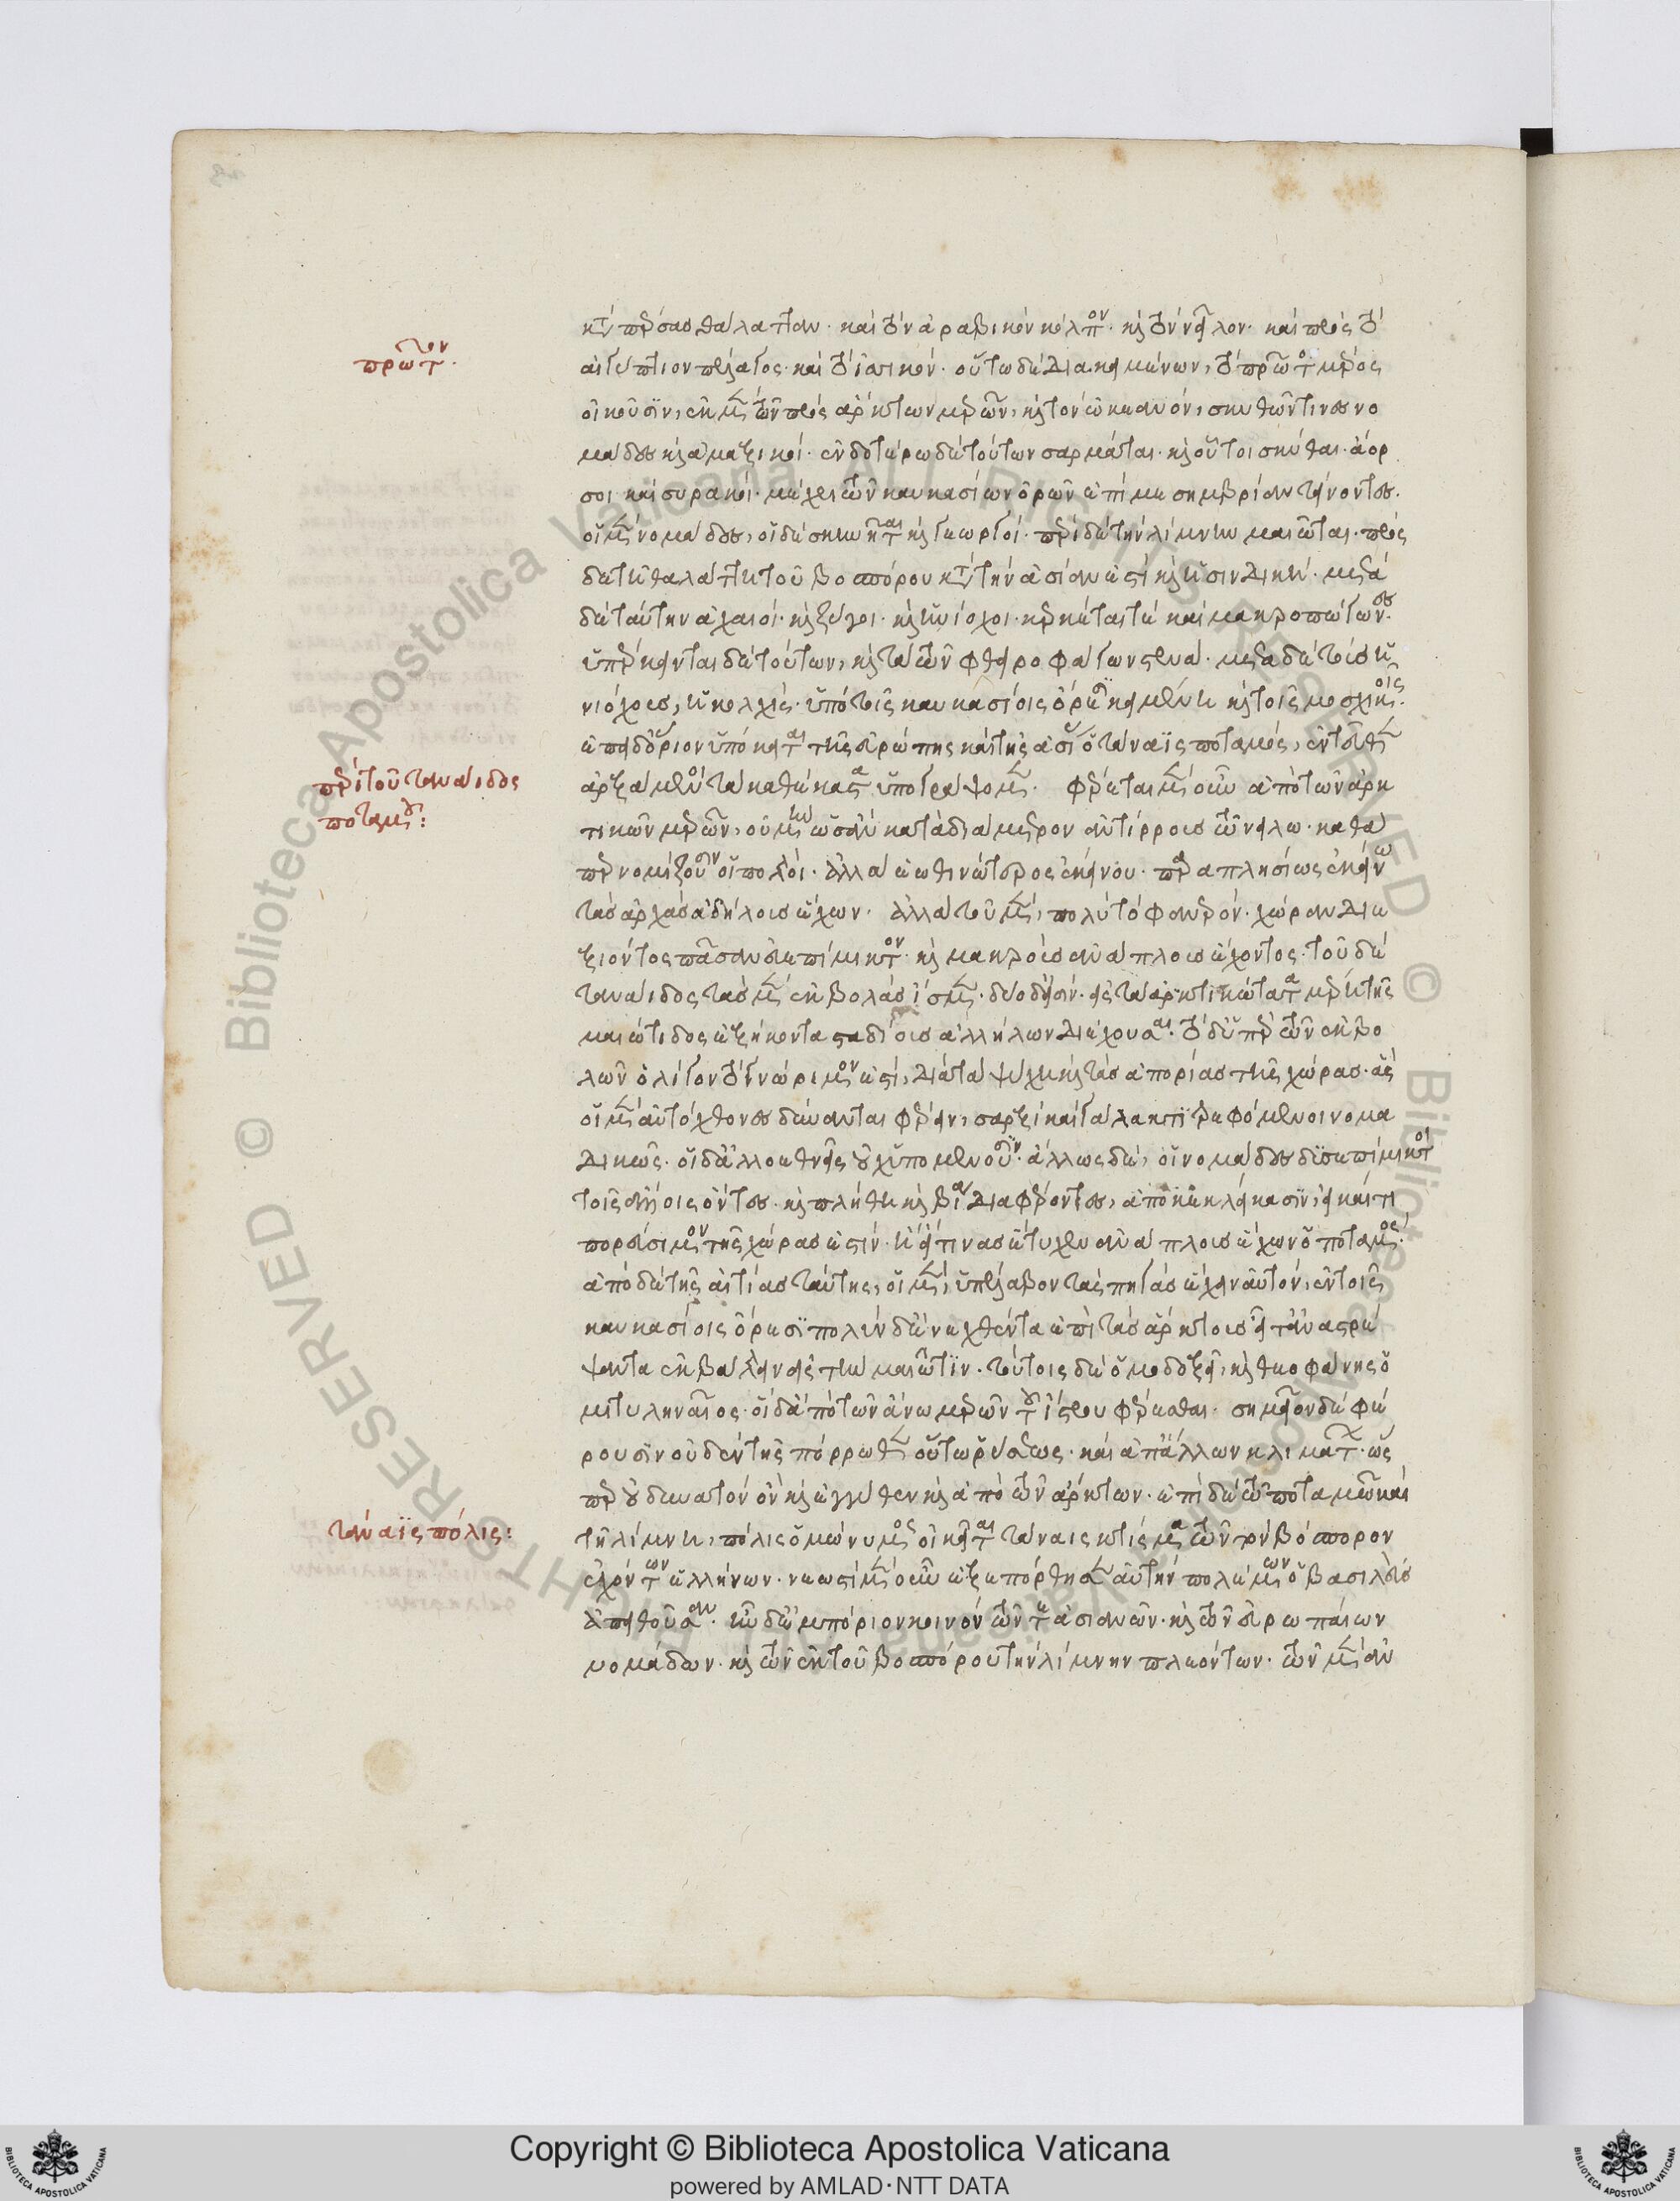 κατὰ πέρσας θάλατταν· καὶ τὸν ἀραβικὸν κόλπον· καὶ τὸν νεῖλον· καὶ πρὸς τὸ
πρῶτον·
αἰγύπτιον πέλαγος· καὶ τὸ ἰσσικόν· οὕτω δὲ διακειμένων, τὸ πρῶτον μέρος
οἰκοῦσιν, ἐκ μὲν τῶν πρὸς ἄρκτων μερῶν, καὶ τὸν ὠκεανόν, σκυθῶν τινες νο
μάδες καὶ ἁμάξικοι· ἐνδοτέρω δὲ τούτων σαρμάται· καὶ οὗτοι σκύθαι· ἄορ
σοι καὶ συρακοί· μέχρι τῶν καυκασίων ὀρῶν ἐπὶ μεσημβρίαν τείνοντες·
οἱ μὲν νομάδες, οἱ δὲ σκηνῆται καὶ γεωργοί· περὶ δὲ τὴν λίμνην μαιῶται· πρὸς
δὲ τῇ θαλάττῃ τοῦ βοσπόρου κατὰ τὴν ἀσίαν ἐστὶ καὶ ἡ σινδική· μετὰ
δὲ ταύτην ἀχαιοί· καὶ ζύγοι· καὶ ἡνίοχοι· κερκέται τέ καὶ μακροπώγωνες·
ὑπέρκεινται δὲ τούτων, καὶ τὰ τῶν φθειροφάγων στενά· μετὰ δὲ τοὺς ἡ
νιόχους, ἡ κολχίς· ὑπὸ τοῖς καυκασίοις ὄρεσι κειμένη καὶ τοῖς μοσχικοῖς·
ἐπεὶ δ' ὅριον ὑπόκειται τῆς εὐρώπης καὶ τῆς ἀσίας ὁ τάναϊς ποταμός, ἐντεῦθεν
περὶ τοῦ τανάιδος
ποταμοῦ:
ἀρξάμενοι τὰ καθέκαστα ὑπογράψομεν· φέρεται μὲν οὖν ἀπὸ τῶν ἀρκ
τικῶν μερῶν, οὐ μὴν ὡς ἂν κατὰ διάμετρον ἀντίρρους τῶ νείλω· καθά
περ νομίζουσιν οἱ πολλοί· ἀλλὰ ἑωθινώτερος ἐκείνου· παραπλησίως ἐκείνω
τὰς ἀρχὰς ἀδήλους ἔχων· ἀλλὰ τοῦ μὲν, πολὺ τὸ φανερόν· χώραν διε
ξιόντος πᾶσαν εὐεπίμικτον· καὶ μακροὺς ἀνάπλους ἔχοντος· τοῦ δὲ
τανάιδος τὰς μὲν ἐκβολὰς ἴσμεν· δύο δ' εἰσίν· εἰς τὰ ἀρκτικώτατα μέρη τῆς
μαιώτιδος ἑξήκοντα σταδίους ἀλλήλων διέχουσαι· τὸ δ' ὑπὲρ τῶν ἐκβο
λῶν ὀλίγον τὸ γνώριμόν ἐστι, διὰ τὰ ψύχη καὶ τὰς ἀπορίας τῆς χώρας· ἃς
οἱ μὲν αὐτόχθονες δύνανται φέρειν, σαρξὶ καὶ γάλακτι τρεφόμενοι νομα
δικῶς· οἱ δ' ἀλλοεθνεῖς οὐχ ὑπομένουσιν· ἄλλως δὲ, οἱ νομάδες δυσεπίμικτοι
τοῖς ἄλλοις ὄντες· καὶ πλήθει καὶ βίᾳ διαφέροντες, ἀποκεκλείκασιν, εἰ καί τι
πορεύσιμον τῆς χώρας ἐστίν· ἢ εἴ τινας ἔτυχεν ἀνάπλους ἔχων ὁ ποταμός·
ἀπὸ δὲ τῆς αἰτίας ταύτης, οἱ μὲν, ὑπέλαβον τὰς πηγὰς ἔχειν αὐτόν, ἐν τοῖς
καυκασίοις ὄρεσι πολὺν δ' ἐνεχθέντα ἐπὶ τὰς ἄρκτους εἶτ' ἀναστρέ
ψαντα ἐκβάλλειν εἰς τὴν μαιῶτιν· τούτοις δὲ ὁμοδοξεῖ, καὶ θεοφάνης ὁ
μιτυληναῖος· οἱ δ' ἀπὸ τῶν ἄνω μερῶν τοῦ ἴστρου φέρεσθαι· σημεῖον δὲ φέ
ρουσιν οὐδὲν τῆς πόρρωθεν οὕτω ῥύσεως· καὶ ἀπ' ἄλλων κλιμάτων· ὥς
περ οὐ δυνατὸν ὂν καὶ ἐγγύθεν καὶ ἀπὸ τῶν ἄρκτων· ἐπὶ δὲ τῶ ποταμῶ καὶ
τάναϊς πόλις:
τῇ λίμνῃ, πόλις ὁμώνυμος οἰκεῖται τάναις κτίσμα τῶν τὸν βόσπορον
ἐχόντων ἑλλήνων· νεωστὶ μὲν οὖν ἐξεπόρθησεν αὐτὴν πολέμων ὁ βασιλεὺς
ἀπειθοῦσαν· ἦν δ' ἐμπόριον κοινὸν τῶν τε ἀσιανῶν· καὶ τῶν εὐρωπαίων
νομάδων· καὶ τῶν ἐκ τοῦ βοσπόρου τὴν λίμνην πλεόντων· τῶν μὲν ἀν
Copyright © Biblioteca Apostolica Vaticana
powered by AMLAD·NTT DATA